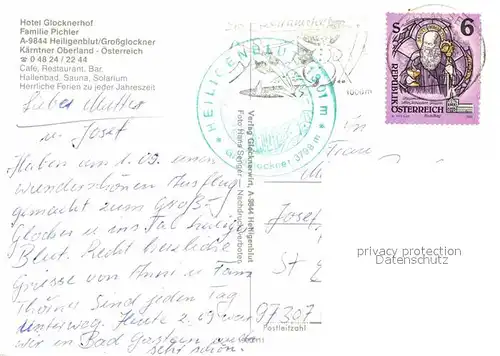 Hotel Glocknerhof
Familie Pichler
A-9844 Heiligenblut/Großglockner
Kärntner Oberland - Österreich
☎ 0 48 24 / 22 44
Café, Restaurant, Bar,
Hallenbad, Sauna, Solarium
Herrliche Ferien zu jeder Jahreszeit
Liebe Mutter
u. Josef
Haben am 1.09. einen
wunderschönen Ausflug
gemacht zum Groß-
Glockner u ins Tal heilig
Blut. Recht herzliche
Grüsse von Anni u Fam
Sind jeden Tag
unterweg. Heute 2.09 waren
wir in Bad Gastein auch
sehr schön.
HEILIGENBLUT 1301 m
Großglockner 3798 m
Verlag Glocknerwirt, A 9844 Heiligenblut
Nachdruck verboten
S 6
REPUBLIK
ÖSTERREICH
Frau
Josef
St
97307
Postleitzahl
privacy protection
Datenschutz